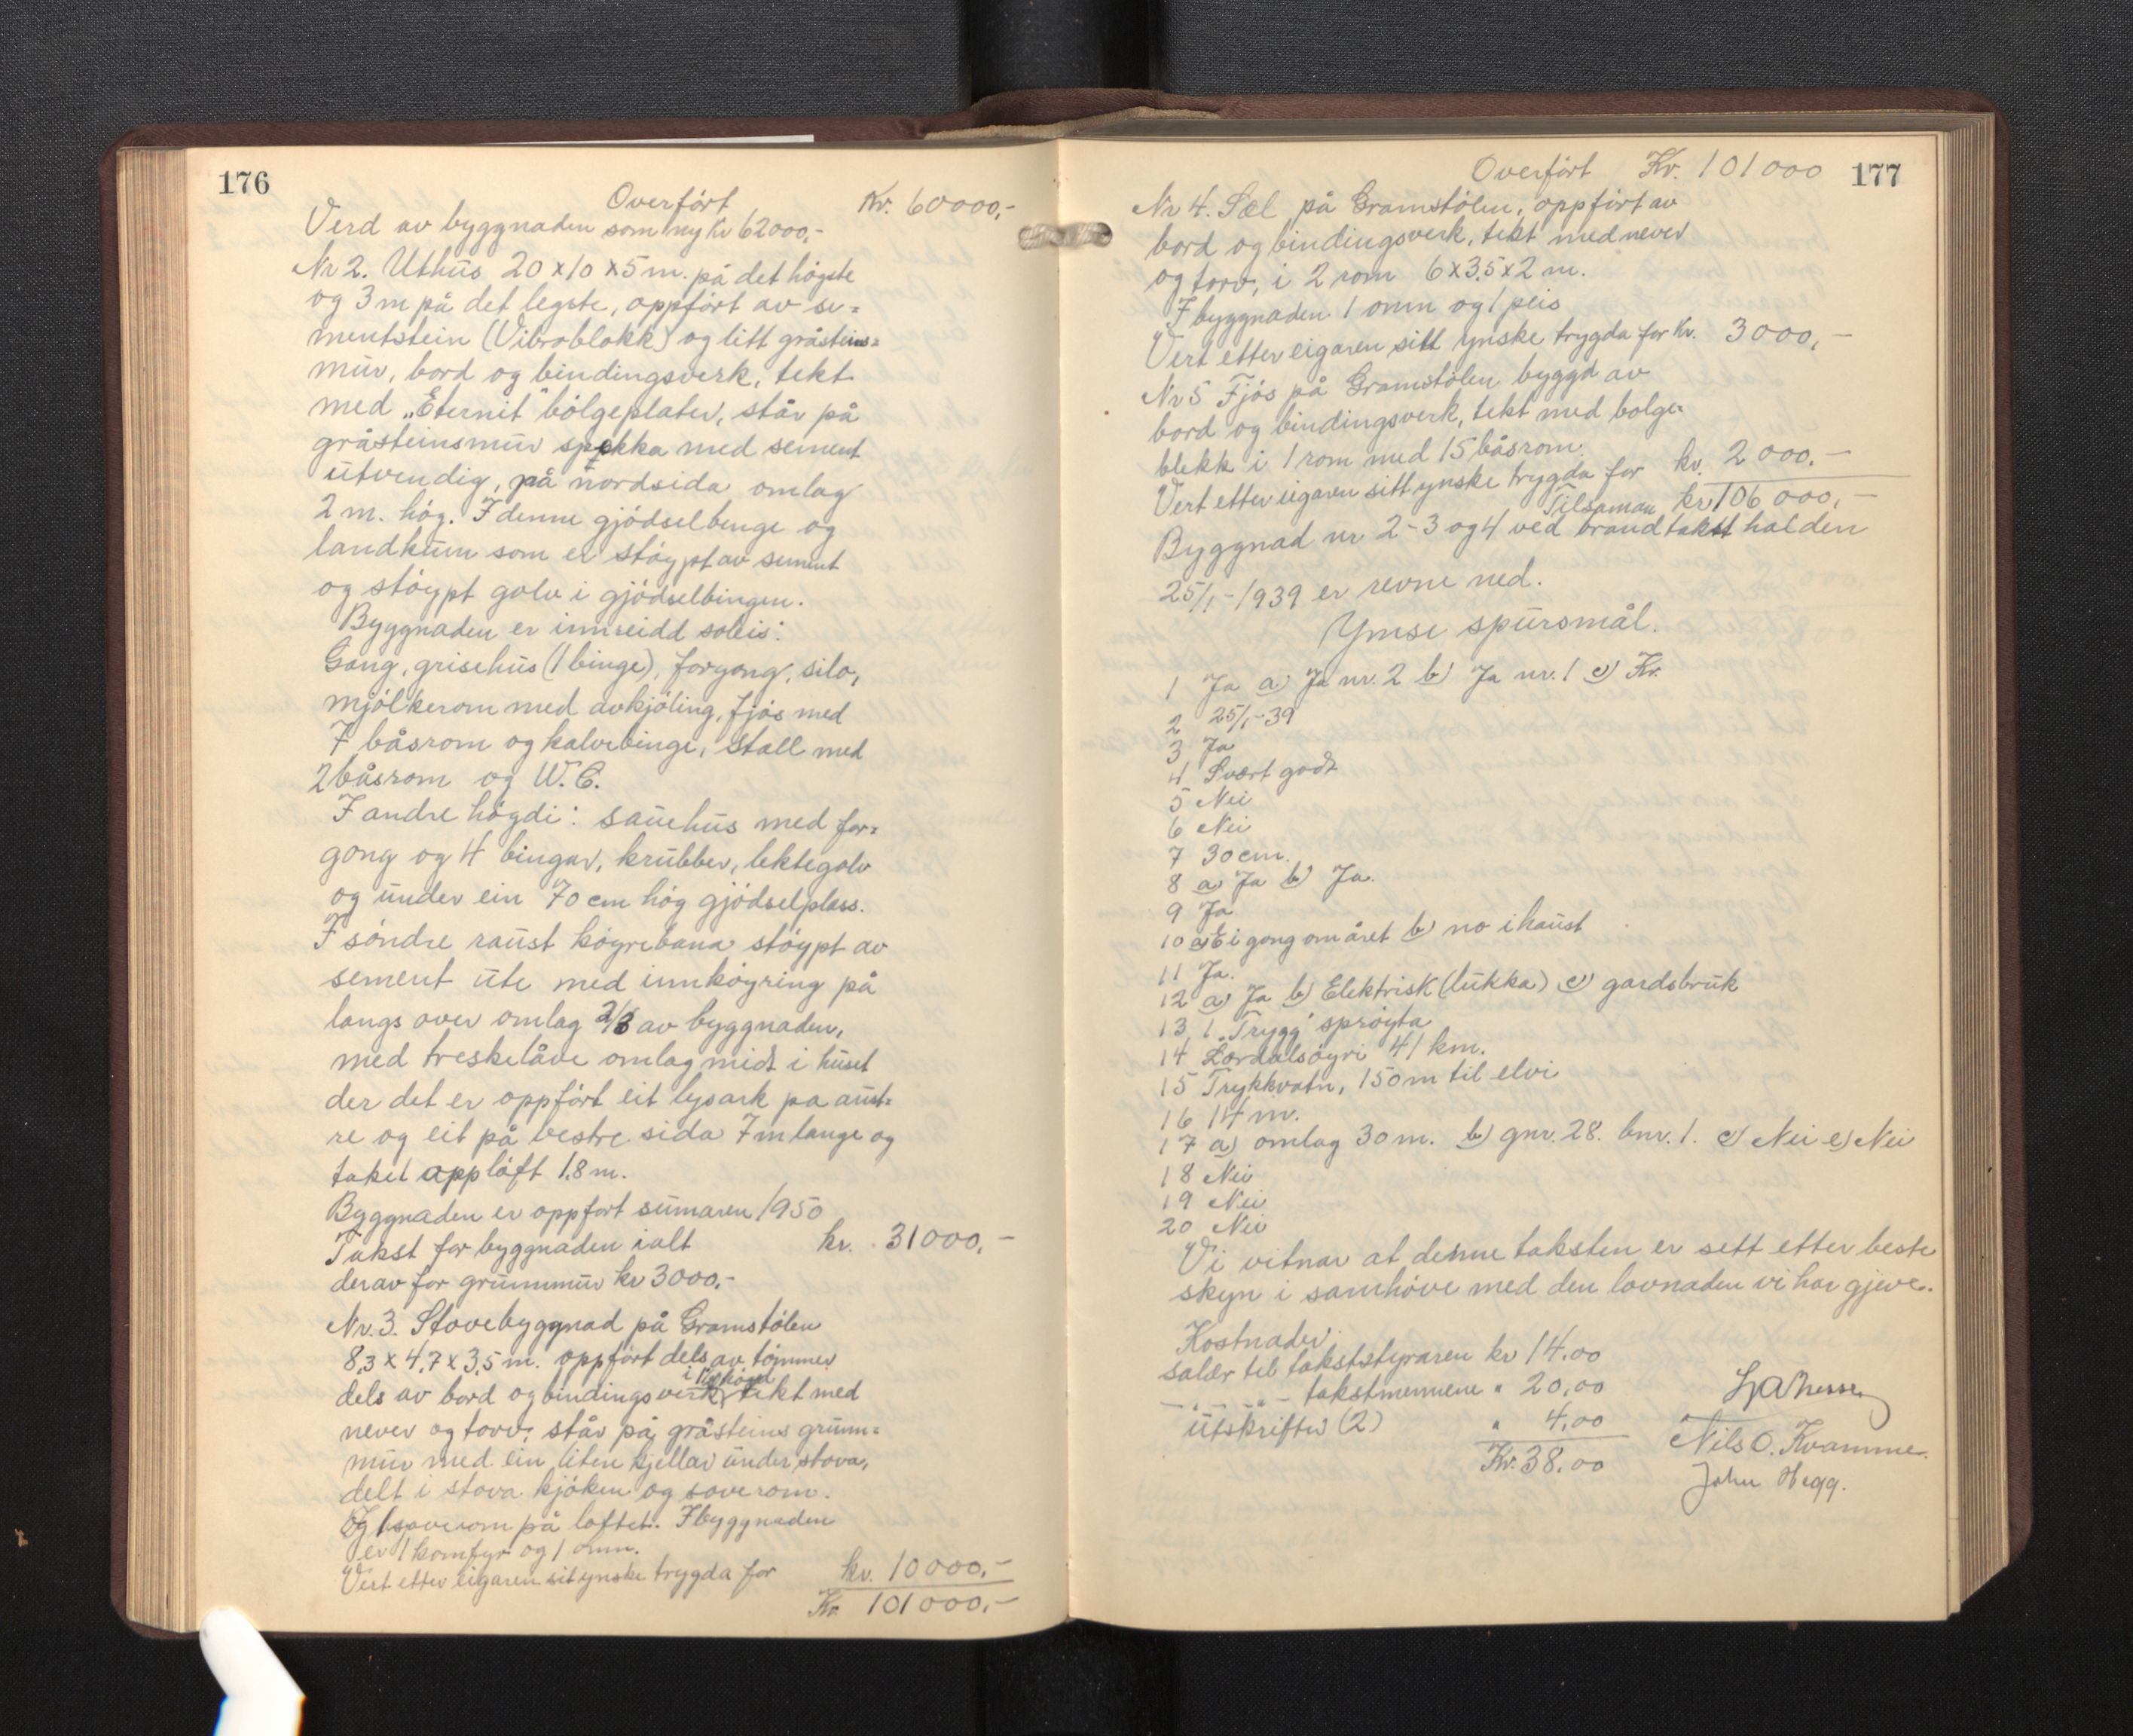 176
Overført Kr. 60000,-
Verd av byggnaden som ny kr 62000,-
Nr 2. Uthus 20 x 10 x 5 m. på det högste
og 3 m på det legste, oppfört av se=
mentstein (Vibroblokk) og litt gråsteins=
mur, bord og bindingsverk, tekt
med „Eternit" bölgeplater, står på
gråsteinsmur spekka med sement
utvendig, på nordsida omlag
2 m. hög. I denne gjödselbenge og
landkum som er stöypt av sement
og stöypt golv i gjödselbingen.
Byggnaden er innreidd soleis:
Gang, grisehus (1 binge), forgong, silo,
mjölkerom med avkjöling, fjös med
7 båsrom og kalvebinge, stall med
2 båsrom og W.C.
I andre högdi: sauehus med for=
gong og 4 bingar, krubber, lektegolv
og under ein 70 cm hög gjödselplass.
I söndre raust köyrebana stöypt av
sement ute med innköyring på
langs over omlag 2/3 av byggnaden,
med treskelåve omlag midt i huset
der det er oppfört eit lysark pa aust=
re og eit på vestre sida 7 m lange og
taket oppløft 1.8 m.
Byggnaden er oppfort sumaren 1950
Takst for byggnaden ialt kr. 31000,-
derav for grunnmur kr 3000,-
Nr. 3. Stovebyggnad på Gramstölen
8,3 x 4,7 x 3,5 m. oppfört dels av tömmer
dels av bord og bindingsverk, tekt med
never og torv, står på gråsteins grunn=
mur med ein liten kjellar under stova,
delt i stova kjöken og soverom.
Og 1 soverom på loftet. I byggnaden
er 1 komfyr og 1 omn.
Vert etter eigaren sit ynske trygda for kr. 10000,-
Kr. 101000,-
Overfört Kr. 101000 177
Nr 4. Sæl på Gramstölen, oppfört av
bord og bindingsverk, tekt med never
og torv, i 2 rom 6 x 3,5 x 2 m.
I byggnaden 1 omn og 1 peis
Vert etter eigaren sitt ynske trygda for Kr. 3000,-
Nr 5 Fjös på Gramstölen byggd av
bord og bindingsverk, tekt med bolge=
blekk i 1 rom med 15 båsrom.
Vert etter eigaren sitt ynske trygda for kr. 2000,-
Tilsaman kr 106 000,-
Byggnad nr 2-3 og 4 ved brandtakst halden
25/1-1939 er revne ned.
Ymse spursmål.
1 Ja a) Ja nr. 2 b) Ja nr. 1 c) Kr.
2 25/1-39
3 Ja
4 Svært godt
5 Nei
6 Nei
7 30 cm.
8 a) Ja b) Ja.
9 Ja
10 a) Ei gong om året b) no i haust
11 Ja.
12 a) Ja b) Elektrisk (lukka) c) gardsbruk
13 1 „Trygg" spröyta
14 Lærdalsöyri 41 km.
15 Trykkvatn, 150 m til elvi
16 14 m.
17 a) omlag 30 m. b) gnr. 28. bnr. 1. c) Nei e) Nei
18 Nei
19 Nei
20 Nei
Vi vitnar at denne taksten er sett etter beste
skyn i samhöve med den lovnaden vi har gjeve.
Kostnader:
salær til takststyraren kr 14.00
- " - - " - takstmennene " 20,00
Utskrifter (2) " 4,00
Kr. 38,00
Nils O. Kvamme
John Hegg.